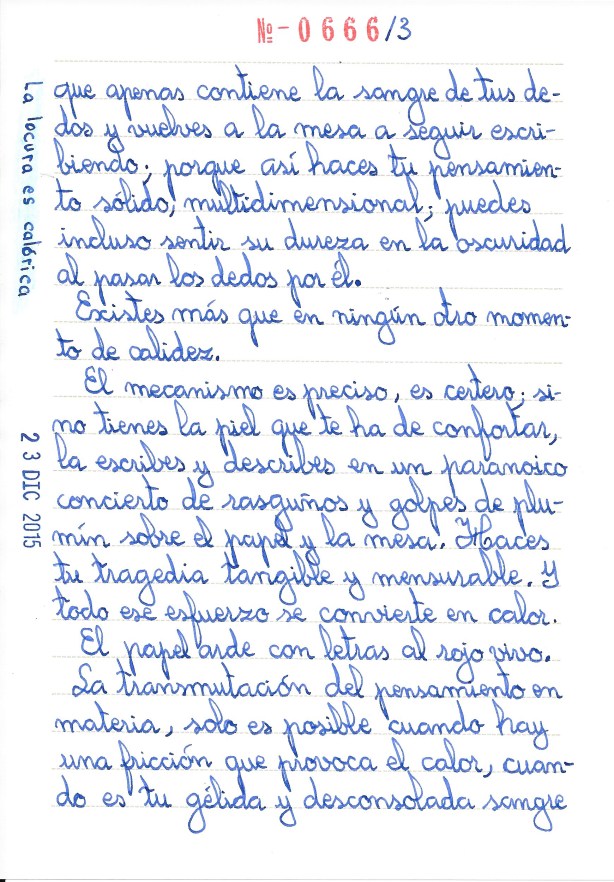 №-0666/3
La locura es calórica
23 DIC 2015
que apenas contiene la sangre de tus de-
dos y vuelves a la mesa a seguir escri-
biendo; porque así haces tu pensamien-
to sólido, multidimensional; puedes
incluso sentir su dureza en la oscuridad
al pasar los dedos por él.
Existes más que en ningún otro momen-
to de calidez.
El mecanismo es preciso, es certero; si-
no tienes la piel que te ha de confortar,
la escribes y describes en un paranoico
concierto de rasguños y golpes de plu-
mín sobre el papel y la mesa. Haces
tu tragedia tangible y mensurable. Y
todo ese esfuerzo se convierte en calor.
El papel arde con letras al rojo vivo.
La transmutación del pensamiento en
materia, solo es posible cuando hay
una fricción que provoca el calor, cuan-
do es tu gélida y desconsolada sangre